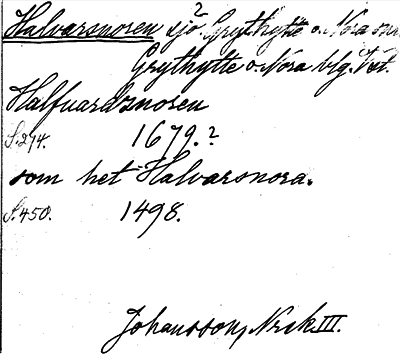 Halvarsnoren sjö? Grythytte o. Nora snr
Grythytte o. Nora blg. Vst.
Halfuardsnoren
S.274. 1679.?
som het Halvarsnora.
S.450. 1498.
Johansson, Nrik III.